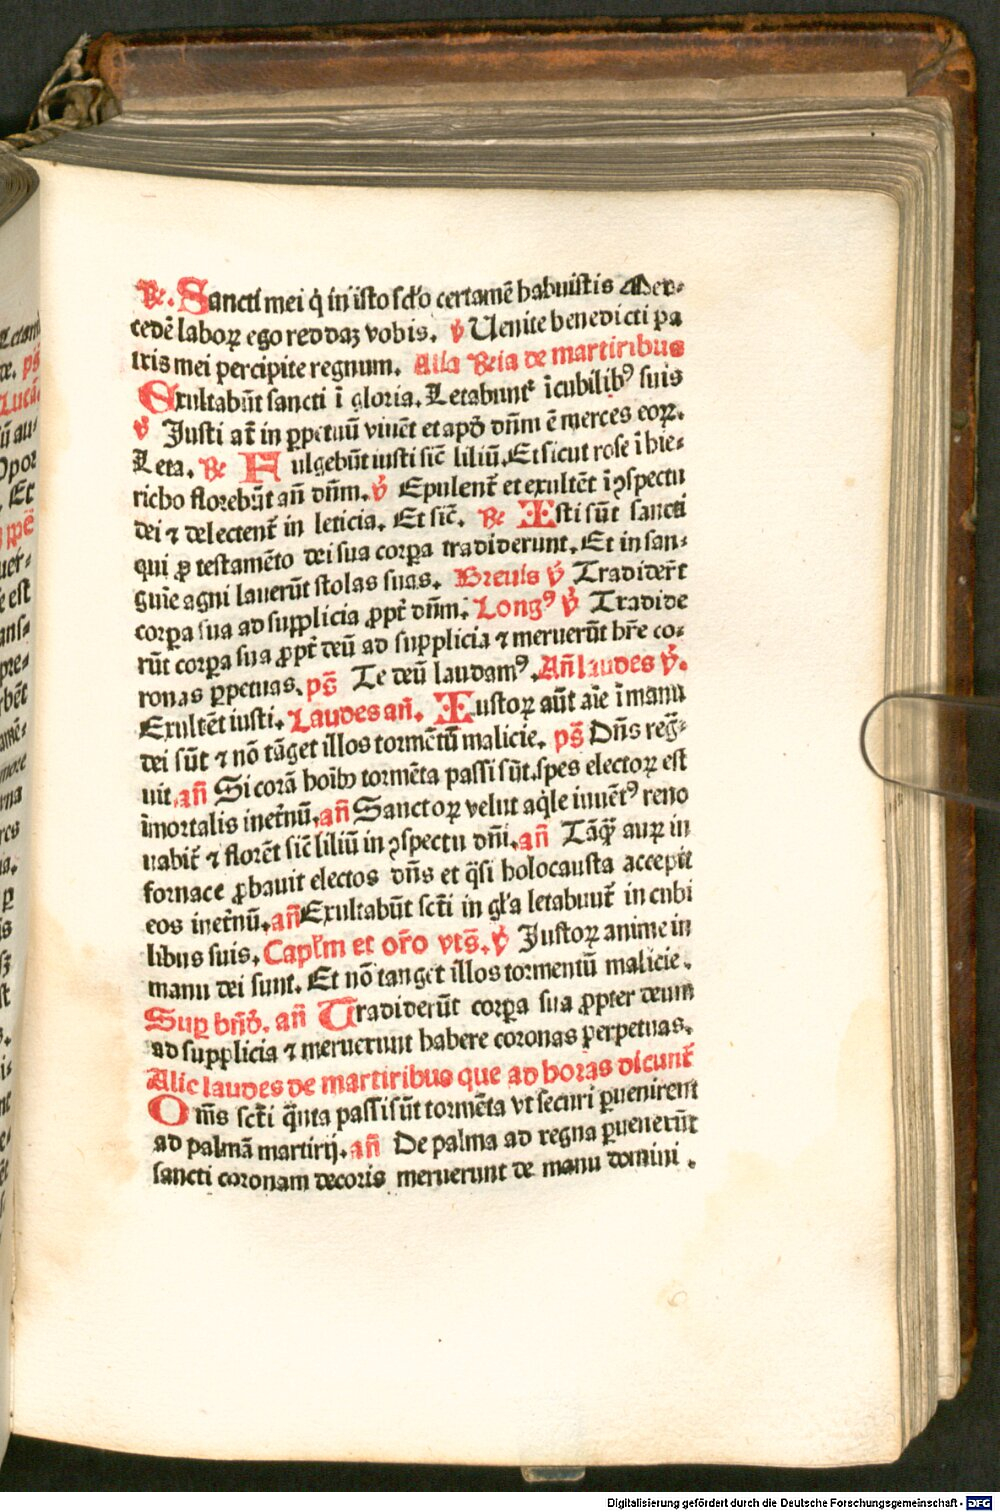 ℟. Sancti mei q̇ in isto sclo certamē habuistis Mer-
cedē laboꝝ ego reddaꝫ vobis. ℣ Uenite benedicti pa
tris mei percipite regnum. Alia ℟ia de martiribus
Exultabūt sancti ī gloria. Letabunt᷑ ī cubilibꝰ suis
℣ Justi at̄ in ꝑpetuū viuēt et apđ dn̄m ē merces eoꝝ.
Leta. ℟ Fulgebūt iusti sic̄ liliū. Et sicut rose ī hie-
richo florebūt an̄ dn̄m. ℣ Epulent᷑ et exultēt ī ꝯspectu
dei ⁊ delectent᷑ in leticia. Et sic̄. ℟ Isti sūt sancti
qui ꝓ testamēto dei sua corꝑa tradiderunt. Et in san-
guīe agni lauerūt stolas suas. Breuis ℣ Tradider̄t
corꝑa sua ad supplicia ꝓpt᷑ dn̄m. Longꝰ ℣ Tradide
rūt corꝑa sua ꝓpt᷑ deū ad supplicia ⁊ meruerūt hr̄e co-
ronas ꝑpetuas. ps̄ Te deū laudamꝰ. An̄ laudes ℣.
Exultēt iusti. Laudes an̄. Iustoꝝ aūt aīe ī manu
dei sūt ⁊ nō tāget illos tormētū malicie. ps̄ Dn̄s reḡ-
uit. an̄ Si corā hoībꝫ tormēta passi sūt. spes electoꝝ est
īmortalis inet᷑nū. an̄ Sanctoꝝ velut aq̇le iuuēt᷑ꝰ reno
uabit᷑ ⁊ florēt sic̄ liliū in ꝯspectu dn̄i. an̄ Tāq̄ȝ auꝝ in
fornace ꝓbauit electos dn̄s et q̄si holocausta accepit
eos inet᷑nū. an̄ Exultabūt sct̄i in gl̄a letabunt᷑ in cubi
libus suis. Capl̄m et or̄o vts̄. ℣ Justoꝝ anime in
manu dei sunt. Et nō tanget illos tormentū malicie.
Suꝑ bn̄đ. an̄ Tradiderūt corꝑa sua ꝓpter deum
ad supplicia ⁊ meruerunt habere coronas perpetuas.
Alie laudes de martiribus que ad horas dicunt᷑
Om̄s sct̄i q̄nta passi sūt tormēta vt securi ꝑuenirent
ad palmā martirij. an̄ De palma ad regna ꝑuenerūt
sancti coronam decoris meruerunt de manu domini.
Digitalisierung gefördert durch die Deutsche Forschungsgemeinschaft - DFG